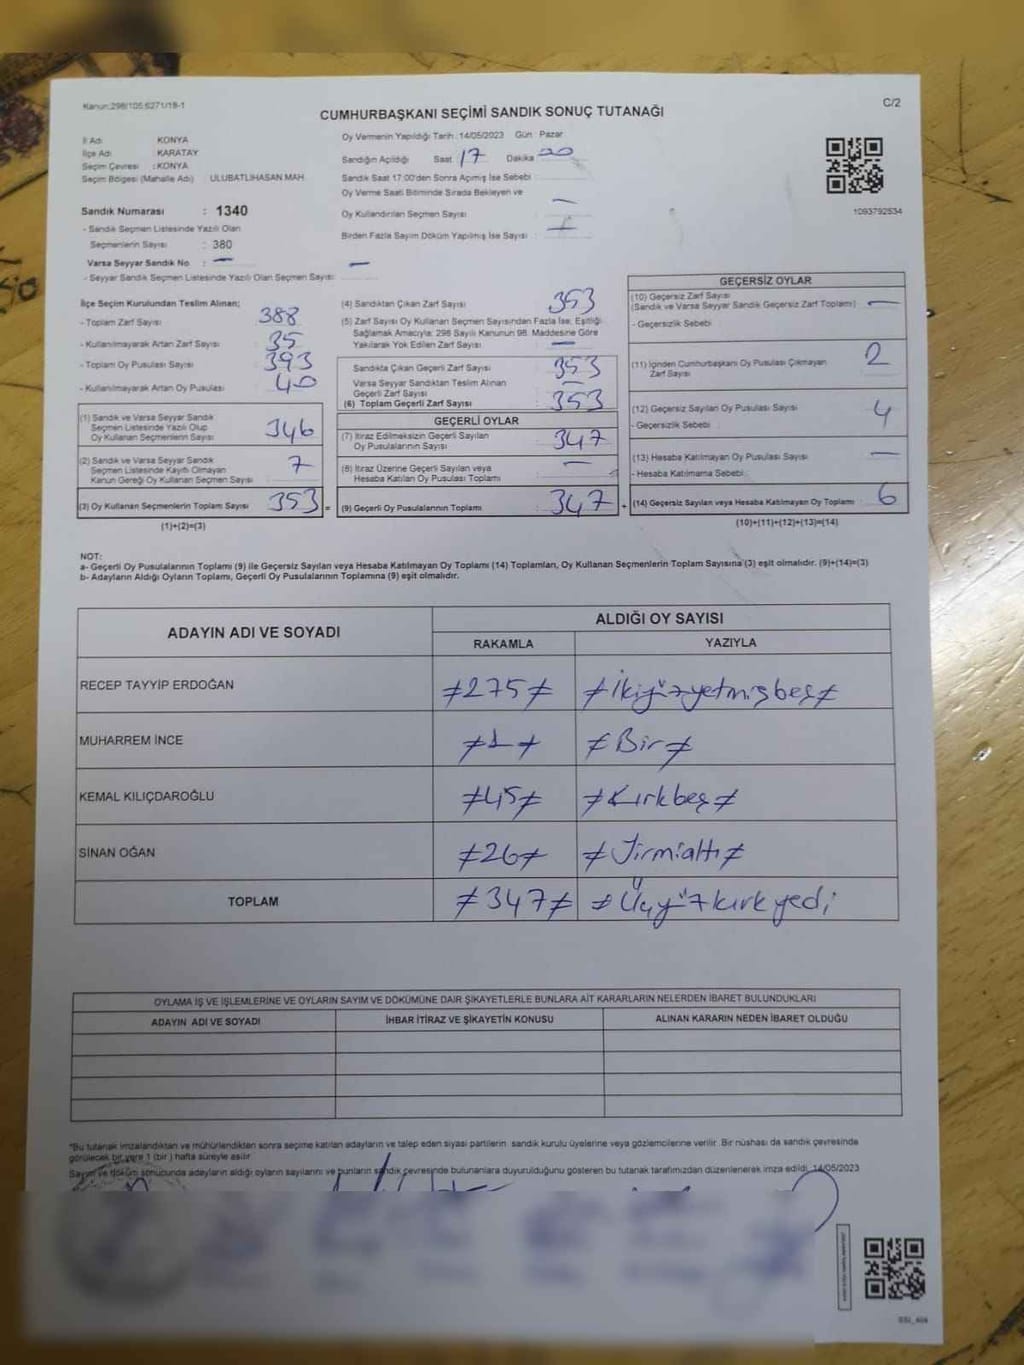 Kanun:298/105 6271/18-1
C/2
CUMHURBAŞKANI SEÇİMİ SANDIK SONUÇ TUTANAĞI
İl Adı KONYA
İlçe Adı KARATAY
Seçim Çevresi : KONYA
Seçim Bölgesi (Mahalle Adı) : ULUBATLIHASAN MAH.
Sandık Numarası : 1340
- Sandık Seçmen Listesinde Yazılı Olan
Seçmenlerin Sayısı : 380
Varsa Seyyar Sandık No : —
- Seyyar Sandık Seçmen Listesinde Yazılı Olan Seçmen Sayısı : —
Oy Vermenin Yapıldığı Tarih :14/05/2023 Gün : Pazar
Sandığın Açıldığı Saat 17 Dakika 20
Sandık Saat 17:00'den Sonra Açımış İse Sebebi
Oy Verme Saati Bitiminde Sırada Bekleyen ve
Oy Kullandırılan Seçmen Sayısı : —
Birden Fazla Sayım Döküm Yapılmış İse Sayısı :
1093792534
İlçe Seçim Kurulundan Teslim Alınan;
- Toplam Zarf Sayısı : 388
- Kullanılmayarak Artan Zarf Sayısı : 35
- Toplam Oy Pusulası Sayısı : 393
- Kullanılmayarak Artan Oy Pusulası : 40
(1) Sandık ve Varsa Seyyar Sandık
Seçmen Listesinde Yazılı Olup
Oy Kullanan Seçmenlerin Sayısı : 346
(2) Sandık ve Varsa Seyyar Sandık
Seçmen Listesinde Kayıtlı Olmayan
Kanun Gereği Oy Kullanan Seçmen Sayısı : 7
(3) Oy Kullanan Seçmenlerin Toplam Sayısı : 353 =
(1)+(2)=(3)
(4) Sandıktan Çıkan Zarf Sayısı : 353
(5) Zarf Sayısı Oy Kullanan Seçmen Sayısından Fazla İse; Eşitliği
Sağlamak Amacıyla; 298 Sayılı Kanunun 98. Maddesine Göre
Yakılarak Yok Edilen Zarf Sayısı : —
Sandıkta Çıkan Geçerli Zarf Sayısı : 353
Varsa Seyyar Sandıktan Teslim Alınan
Geçerli Zarf Sayısı : —
(6) Toplam Geçerli Zarf Sayısı : 353
GEÇERLİ OYLAR
(7) İtiraz Edilmeksizin Geçerli Sayılan
Oy Pusulalarının Sayısı : 347
(8) İtiraz Üzerine Geçerli Sayılan veya
Hesaba Katılan Oy Pusulası Toplamı : —
(9) Geçerli Oy Pusulalarının Toplamı : 347 +
GEÇERSİZ OYLAR
(10) Geçersiz Zarf Sayısı
(Sandık ve Varsa Seyyar Sandık Geçersiz Zarf Toplamı) : —
- Geçersizlik Sebebi :
(11) İçinden Cumhurbaşkanı Oy Pusulası Çıkmayan
Zarf Sayısı : 2
(12) Geçersiz Sayılan Oy Pusulası Sayısı : 4
- Geçersizlik Sebebi :
(13) Hesaba Katılmayan Oy Pusulası Sayısı : —
- Hesaba Katılmama Sebebi :
(14) Geçersiz Sayılan veya Hesaba Katılmayan Oy Toplamı : 6
(10)+(11)+(12)+(13)=(14)
NOT:
a- Geçerli Oy Pusulalarının Toplamı (9) ile Geçersiz Sayılan veya Hesaba Katılmayan Oy Toplamı (14) Toplamları, Oy Kullanan Seçmenlerin Toplam Sayısına (3) eşit olmalıdır. (9)+(14)=(3)
b- Adayların Aldığı Oyların Toplamı, Geçerli Oy Pusulalarının Toplamına (9) eşit olmalıdır.
ADAYIN ADI VE SOYADI
ALDIĞI OY SAYISI
RAKAMLA YAZIYLA
RECEP TAYYİP ERDOĞAN ≠275≠ ≠İkiyüzyetmişbeş≠
MUHARREM İNCE ≠1≠ ≠Bir≠
KEMAL KILIÇDAROĞLU ≠45≠ ≠Kırkbeş≠
SİNAN OĞAN ≠26≠ ≠Yirmialtı≠
TOPLAM ≠347≠ ≠Üçyüzkırkyedi
OYLAMA İŞ VE İŞLEMLERİNE VE OYLARIN SAYIM VE DÖKÜMÜNE DAİR ŞİKAYETLERLE BUNLARA AİT KARARLARIN NELERDEN İBARET BULUNDUKLARI
ADAYIN ADI VE SOYADI İHBAR İTİRAZ VE ŞİKAYETİN KONUSU ALINAN KARARIN NEDEN İBARET OLDUĞU
*Bu tutanak imzalandıktan ve mühürlendikten sonra seçime katılan adayların ve talep eden siyasi partilerin sandık kurulu üyelerine veya gözlemcilerine verilir. Bir nüshası da sandık çevresinde
görülecek bir yere 1 (bir ) hafta süreyle asılır.
Sayım ve döküm sonucunda adayların aldığı oyların sayılarını ve bunların sandık çevresinde bulunanlara duyurulduğunu gösteren bu tutanak tarafımızdan düzenlenerek imza edildi. 14/05/2023